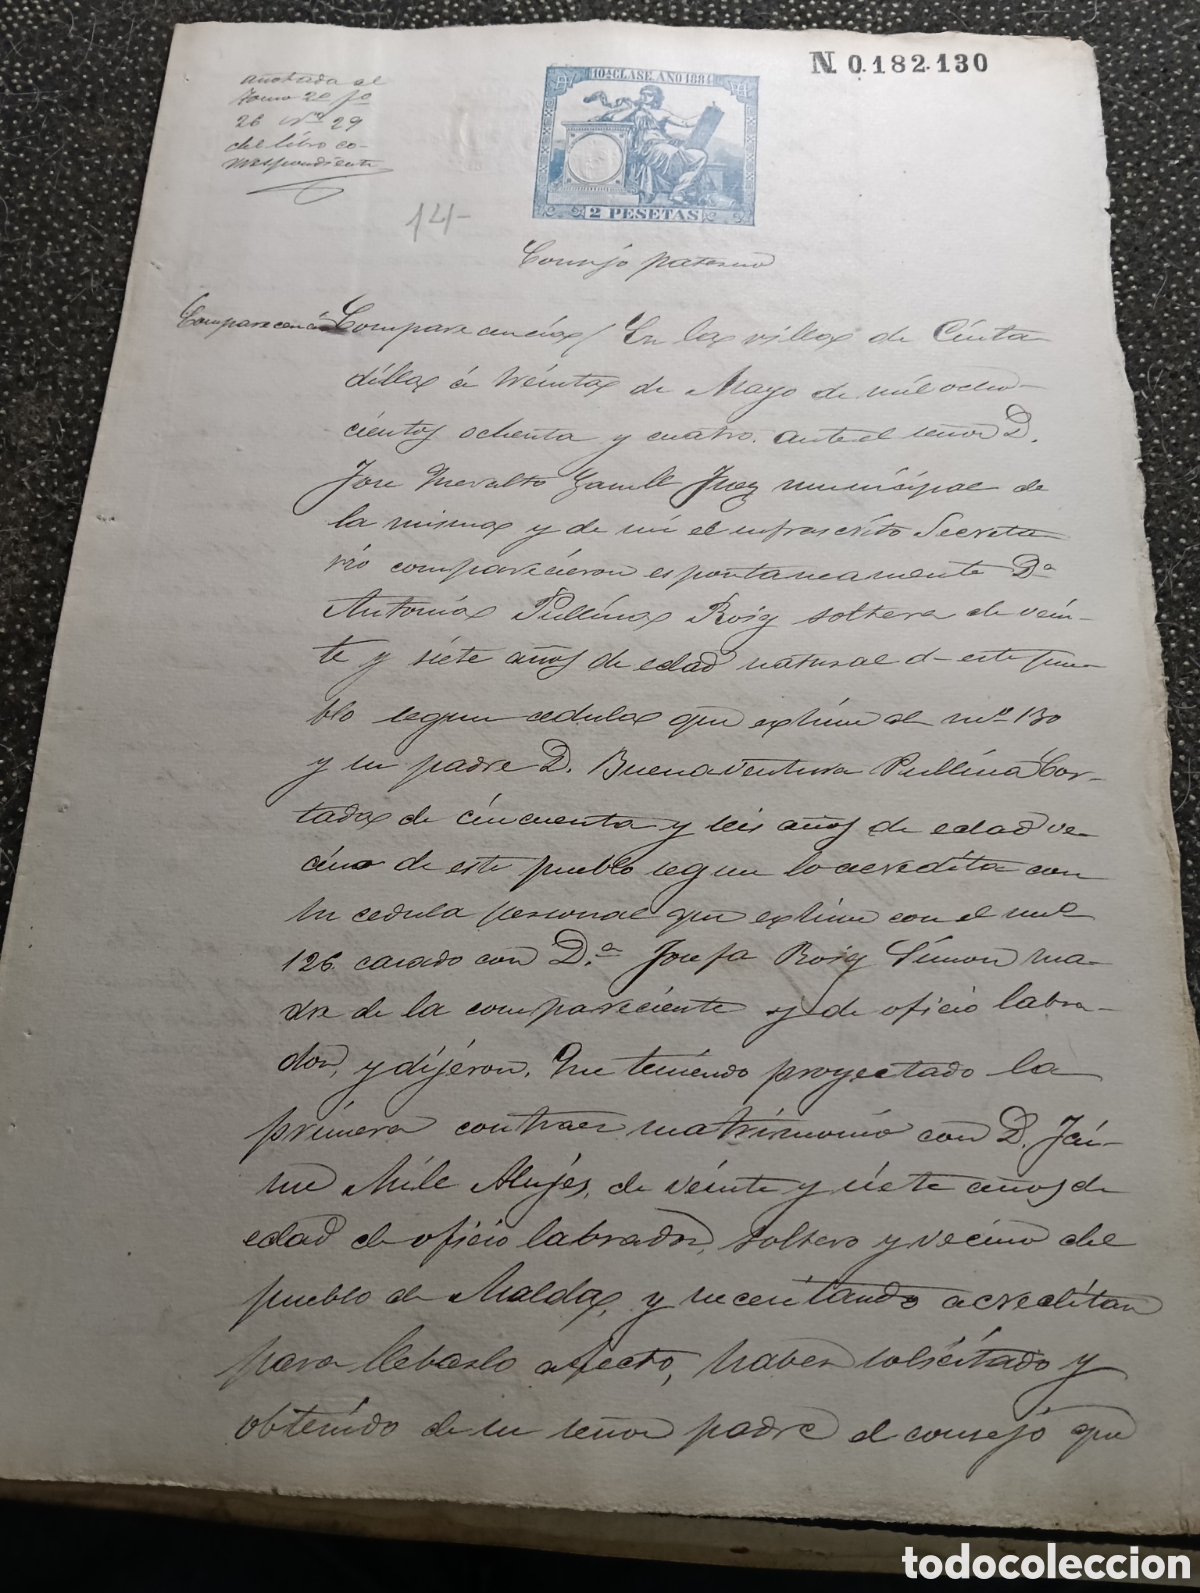 N. 0.182.130
10ª CLASE. AÑO 1884
2 PESETAS
anotada al
tomo 2º fº
26 Nº 29
del libro co-
rrespondiente
14-
Consejo paterno
Comparecencia Comparecencia / En la villa de Cinta
dilla á treinta de Mayo de mil ocho-
cientos ochenta y cuatro. ante el señor D.
Jose Juez municipal de
la misma y de mi el infrascrito Secreta
rio comparecieron espontaneamente Dª
Antonia Pullina Roig soltera de vein-
te y siete años de edad natural d- este pue
blo segun cedula que exhive al nº 130
y su padre D. Buenaventura Pullina Cor-
tada de cincuenta y seis años de edad ve
cino de este pueblo segun lo acredita con
su cedula personal que exhive con el
126 casado con D.ª Josefa Roig Simon ma-
dre de la compareciente y de oficio labra-
dor, y dijeron. Que teniendo proyectado la
primera contraer matrimonio con D. Jai-
me Mile Alujes, de veinte y siete años de
edad de oficio labrador, soltero y vecino del
pueblo de Malda, y necesitando acreditan
para llebarlo afecto, haber solicitado y
obtenido de su señor padre el consejo que
todocoleccion